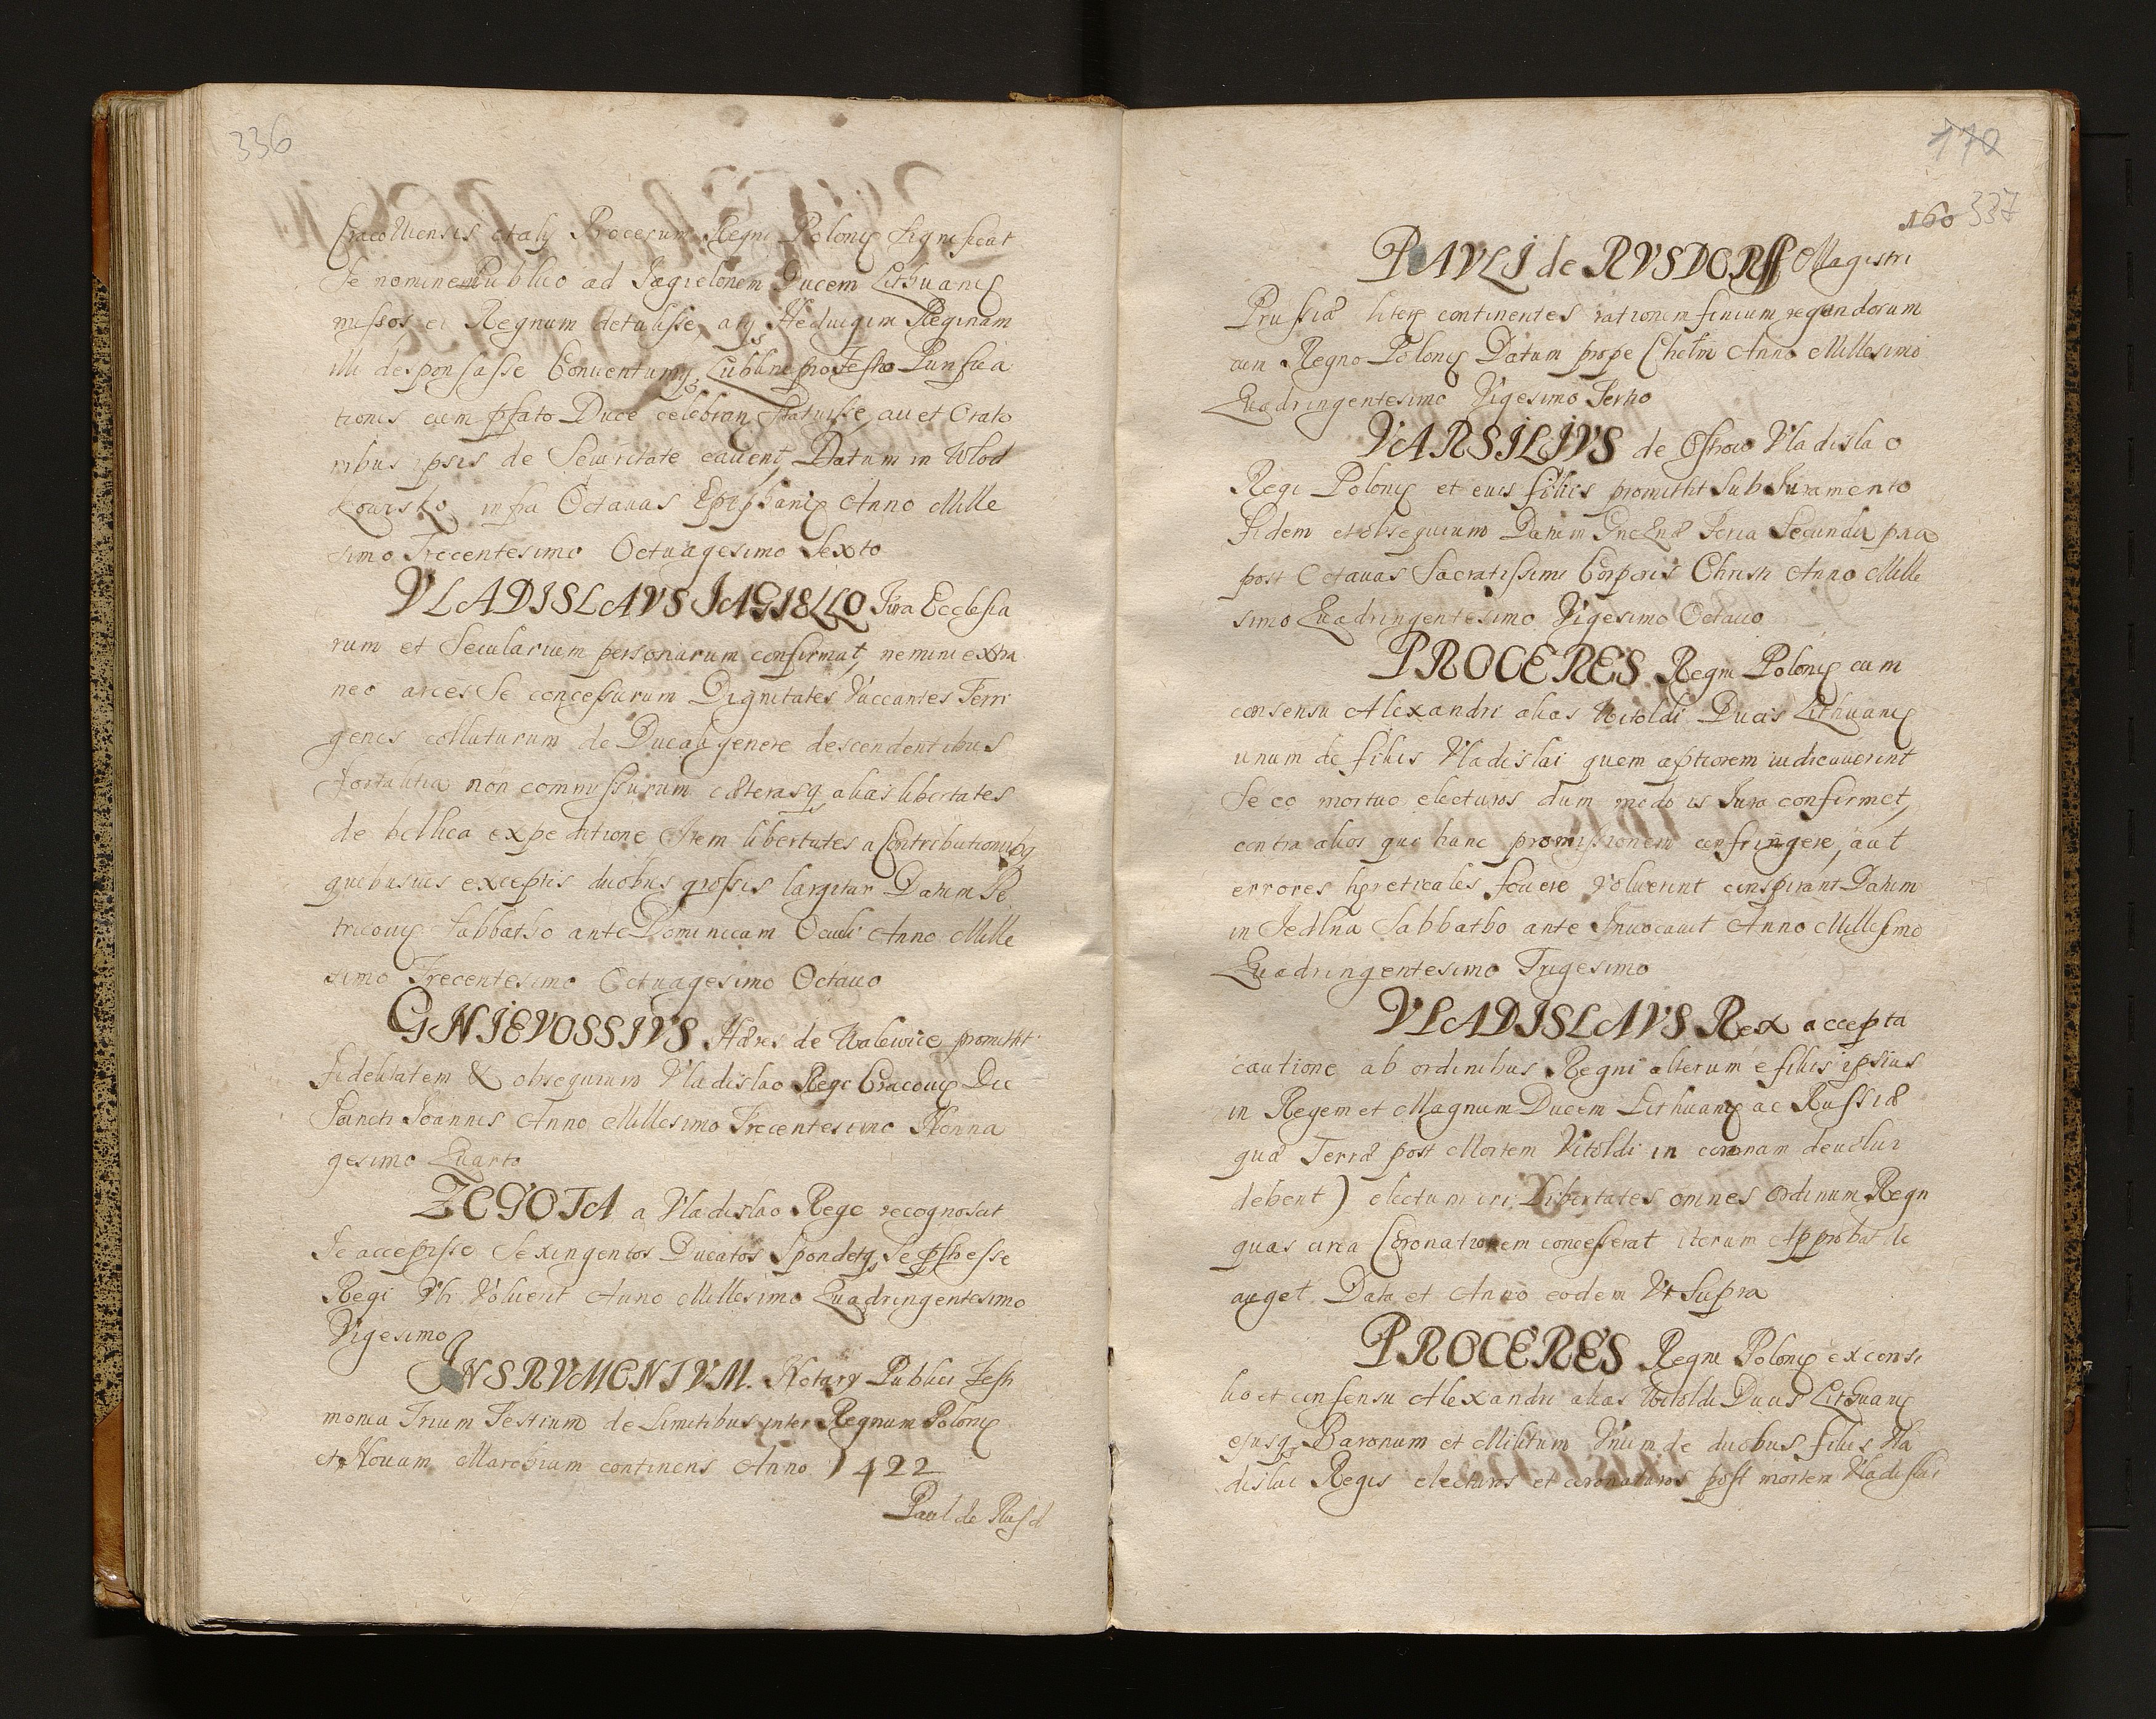 336
Cracoviensis et alij Proceres Regni Polonię significat
Se nomine Publico ad Jagielonem Ducem Lithuanię
missos ei Regnum detulisse, atq Heduigim Reginam
illi desponsasse Conuentumq Lublini pro Festo Purifica
tionis cum pfato Duce celebrari statuisse, au et Orato
ribus ipsis de Securitate cauent, Datum in Wlod
kouisko infra Octauas Epiphanię Anno Mille
simo Trecentesimo Octuagesimo Sexto
VLADISLAVS JAGIELLO Jura Ecclesia
rum et Secularium personarum confirmat, nemini extra
neo arces Se concessurum Dignitates Vaccantes Terri
genis collaturum de Ducali genere descendentibus
fortalitia non commissurum cæterasq alias libertates
de bellica expeditione Item libertates a Contributionibq
quibusuis exceptis duobus grossis largitur Datum Pe
tricouię Sabbatho ante Dominicam Oculi Anno Mille
simo Trecentesimo Octuagesimo Octauo
GNIEVOSSIVS Hæres de Walewice promittit
fidelitatem & obsequium Vladislao Rege Cracouię Die
Sancti Joannis Anno Millesimo Trecentesimo Nonna
gesimo Quarto
ZEGOTA a Vladislao Rege recognoscit
Se accepisse Sexingentos Ducatos Spondetq se pstesse
Regi Vbi Voluerit Anno Millesimo Quadringentesimo
Vigesimo
INSRVMENTVM. Notary Publici Testi
monia Trium Testium de Limitibus inter Regnum Polonię
et Nouam Marchium continens Anno 1422
Paul de Rusd
170
160 337
PAVLI de RVSDORff Magistri
Prussiæ literę continentes rationem finium regundorum
cum Regno Polonię Datum prope Chelm Anno Millesimo
Quadringentesimo Vigesimo Tertio
VARSILIVS de Ostrow Vladislao
Regi Polonię et euis filiis promittit Sub Juramento
fidem et obsequium Datum Gneznæ Feria Secunda pxa
post Octauas Sacratissimi Corporis Christi Anno Mille
simo Quadringentesimo Vigesimo Octauo
PROCERES Regni Polonię cum
consensu Alexandri alias Witoldi Ducis Lithuanię
unum de filiis Vladislai quem aptiorem iudicauerint
Se eo mortuo electuros dum modo is Jura confirmet,
contra alios qui hanc promissionem confringere, aut
errores hęreticales fouere voluerint conspirant Datum
in Jedlna Sabbatho ante Inuocauit Anno Millesimo
Quadringentesimo Trigesimo
VLADISLAVS Rex accepta
cautione ab ordinibus Regni alterum e filiis ipsius
in Regem et Magnum Ducem Lithuanię ac Russiæ
quæ Terræ post Mortem Vitoldi in coronam deuolui
debent) electum iri Libertates omnes Ordinum Regn
quas circa Coronationem concesserat iterum Approbat Ac
auget. Data et Anno eodem Vt Supra
PROCERES Regni Polonię ex consi
lio et consensu Alexandri alias Witoldi Ducis Lithuanię
ejusq Baronum et Militum Unum de duobus filiis Vla
dislai Regis electuros et coronaturos post mortem Vladislai